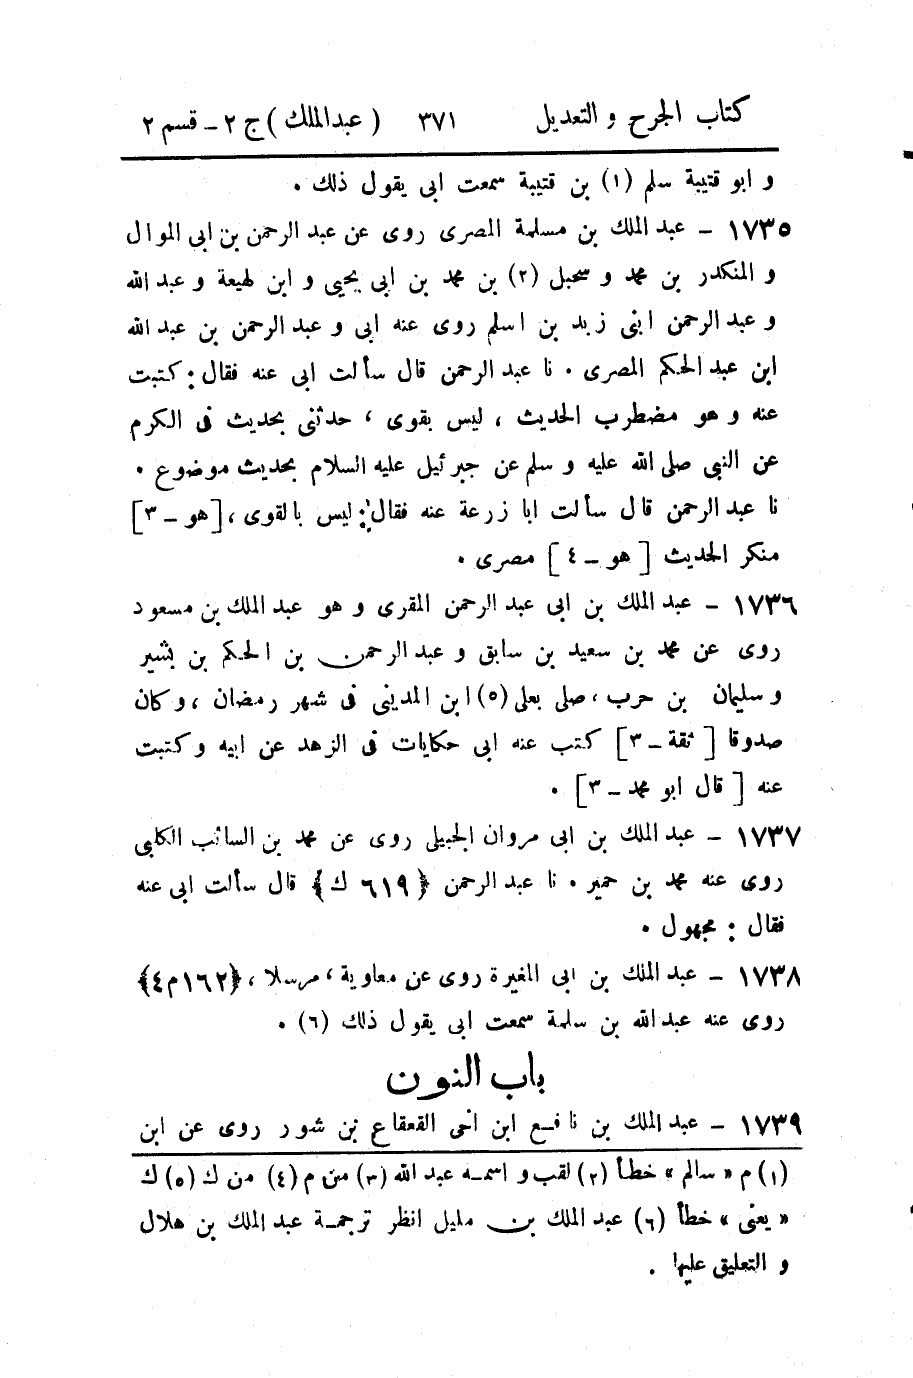 كتاب الجرح و التعديل ٣٧١ (عبدالملك) ج ٢ – قسم ٢
و ابو قتيبة سلم (١) بن قتيبة سمعت ابى يقول ذلك ٠
١٧٣٥ – عبد الملك بن مسلمة المصرى روى عن عبد الرحمن بن ابى الموال
و المنكدر بن محمد و سحبل (٢) بن محمد بن ابى يحيى و ابن لهيعة و عبد الله
و عبد الرحمن ابنى زيد بن اسلم روى عنه ابى و عبد الرحمن بن عبد الله
ابن عبد الحكم المصرى ٠ نا عبد الرحمن قال سألت ابى عنه فقال : كتبت
عنه و هو مضطرب الحديث ، ليس بقوى ، حدثنى بحديث فى الكرم
عن النبى صلى الله عليه و سلم عن جبرئيل عليه السلام بحديث موضوع ٠
نا عبد الرحمن قال سألت ابا زرعة عنه فقال : ليس بالقوى ، [هو – ٣]
منكر الحديث [ هو – ٤ ] مصرى ٠
١٧٣٦ – عبد الملك بن ابى عبد الرحمن المقرى و هو عبد الملك بن مسعود
روى عن محمد بن سعيد بن سابق و عبد الرحمن بن الحكم بن بشير
و سليمان بن حرب ، صلى بعلى (٥) ابن المدينى فى شهر رمضان ، و كان
صدوقا [ ثقة – ٣ ] كتب عنه ابى حكايات فى الزهد عن ابيه و كتبت
عنه [ قال ابو محمد – ٣ ] ٠
١٧٣٧ – عبد الملك بن ابى مروان الجبيلى روى عن محمد بن السائب الكلبى
روى عنه محمد بن حمير ٠ نا عبد الرحمن ﴿٦١٩ ك﴾ قال سألت ابى عنه
فقال : مجهول ٠
١٧٣٨ – عبد الملك بن ابى المغيرة روى عن معاوية ، مرسلا ، ﴿١٦٢م٤﴾
روى عنه عبد الله بن سلمة سمعت ابى يقول ذلك (٦) ٠
باب النون
١٧٣٩ – عبد الملك بن نافع ابن اخى القعقاع بن شور روى عن ابن
(١) م « سالم » خطأ (٢) لقب و اسمه عبد الله (٣) من م (٤) من ك (٥) ك
« يعنى » خطأ (٦) عبد الملك بن مليل انظر ترجمة عبد الملك بن هلال
و التعليق عليها .